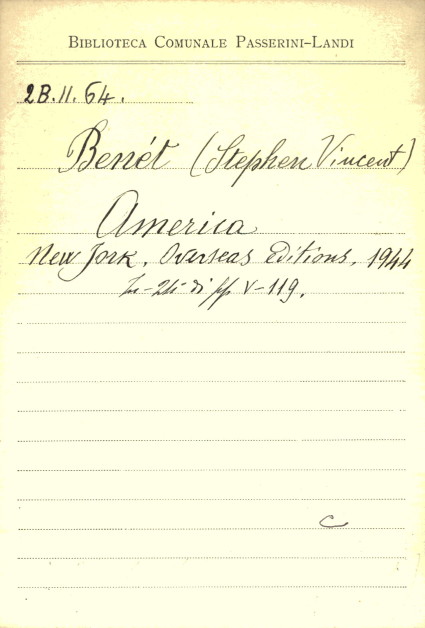 BIBLIOTECA COMUNALE PASSERINI-LANDI
2B.II.64.
Benét (Stephen Vincent)
America
New Jork, Overseas editions, 1944
In-24° di pp V-119.
C